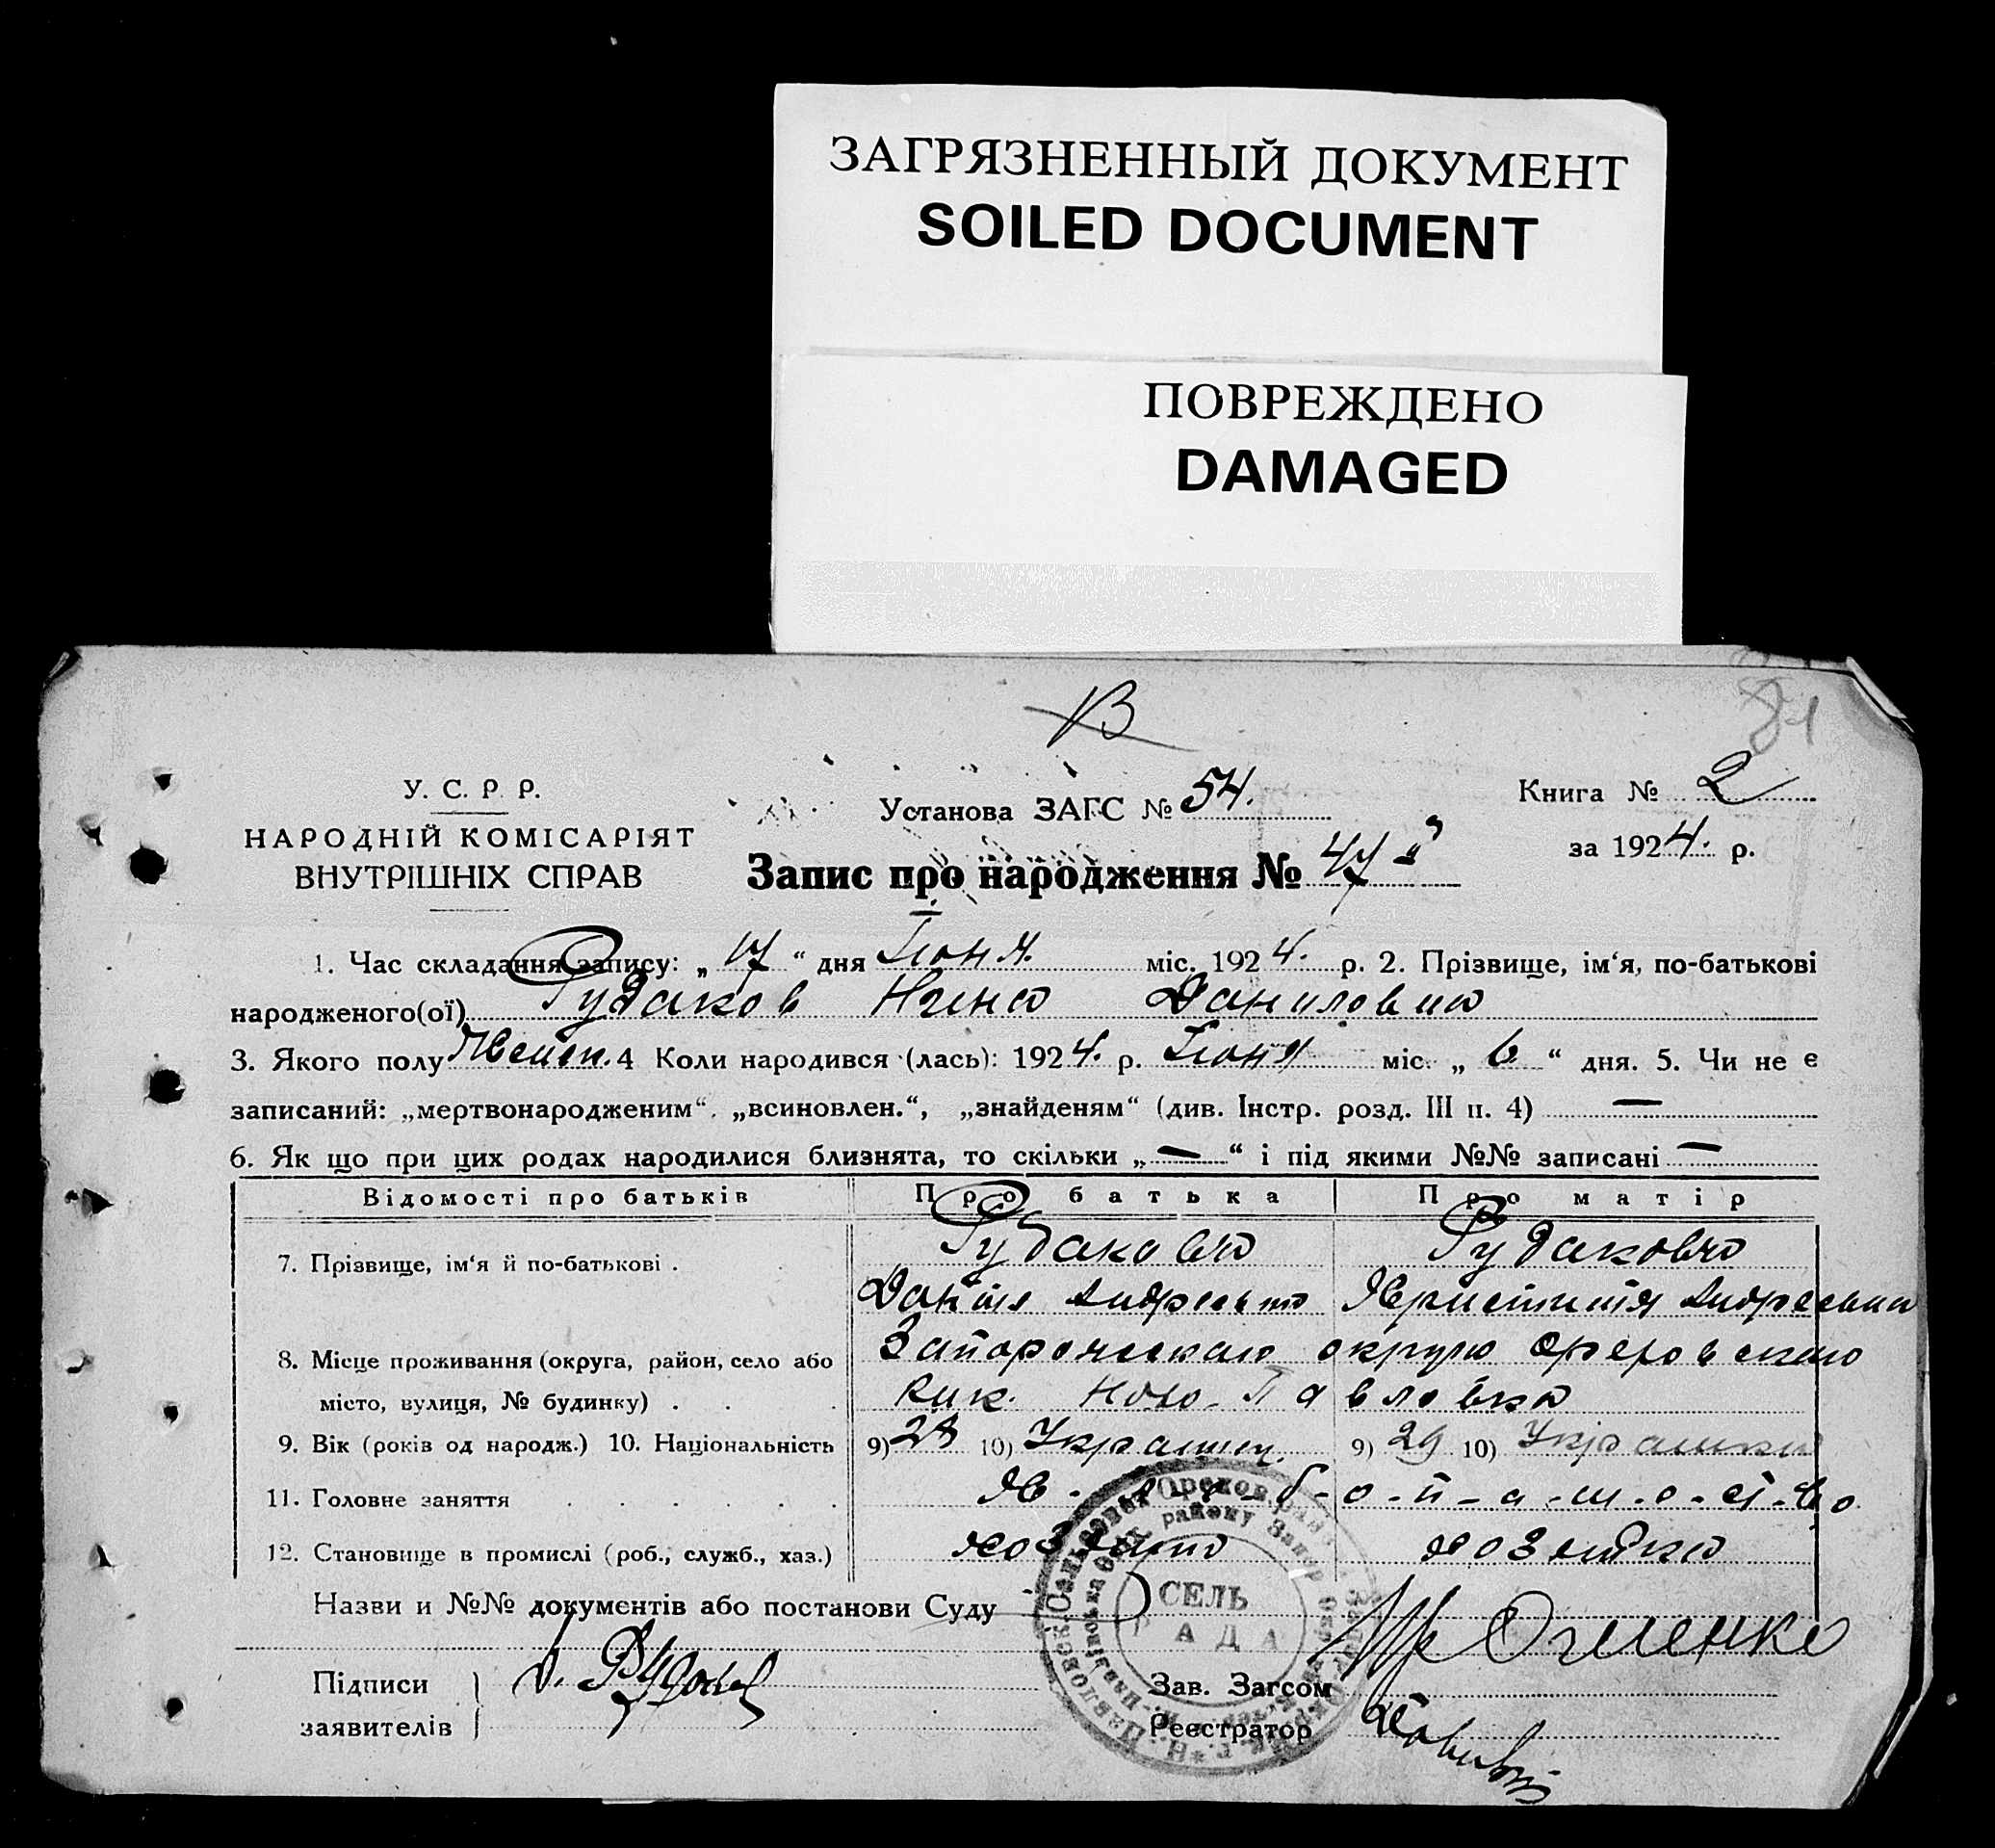 ЗАГРЯЗНЕННЫЙ ДОКУМЕНТ
SOILED DOCUMENT
ПОВРЕЖДЕНО
DAMAGED
В
81
У. С. Р. Р.
Установа ЗАГС № 54.
Книга № 2
НАРОДНІЙ КОМІСАРІЯТ
за 1924. р.
ВНУТРІШНІХ СПРАВ
Запис про народження № 47
1. Час складання запису: „ 17 “ дня Іюня. міс. 1924. р. 2. Прізвище, ім‘я, по-батькові
народженого(ої) Рудаков Нина Даниловна
3. Якого полу Женск. 4 Коли народився (лась): 1924. р. Іюня міс. „ 6 “ дня. 5. Чи не є
записаний: „мертвонародженим“, „всиновлен.“, „знайденям“ (див. Інстр. розд. III п. 4) —
6. Як що при цих родах народилися близнята, то скільки „ — “ і під якими №№ записані —
Відомості про батьків Про батька Про матір
7. Прізвище, ім‘я й по-батькові . Рудакова Рудакова
Даниил
8. Місце проживання (округа, район, село або Запорожскаго округа
місто, вулиця, № будинку) . . . Ново-Павловка
9. Вік (років од народж.) 10. Національність 9) 28 10) Украинец 9) 29 10) Украинка
11. Головне заняття . . . . . .
12. Становище в промислі (роб., служб., хаз.) хозяйка
Назви и №№ документів або постанови Суду
СЕЛЬ
РАДА
Підписи
заявителів
Зав. Загсом
Реєстратор